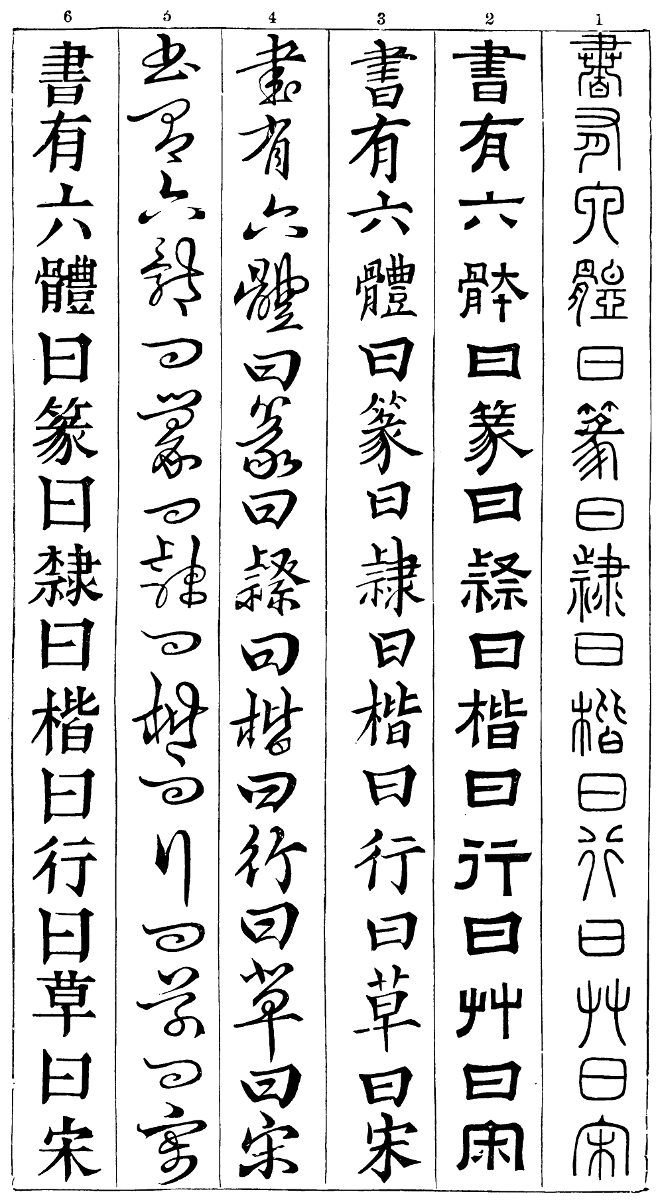 1
書有六體曰篆曰隸曰楷曰行曰艸曰宋
2
書有六骵曰篆曰隸曰楷曰行曰艸曰宋
3
書有六體曰篆曰隸曰楷曰行曰草曰宋
4
書有六體曰篆曰隸曰楷曰行曰草曰宋
5
書有六體曰篆曰隸曰楷曰行曰草曰宋
6
書有六體曰篆曰隸曰楷曰行曰草曰宋